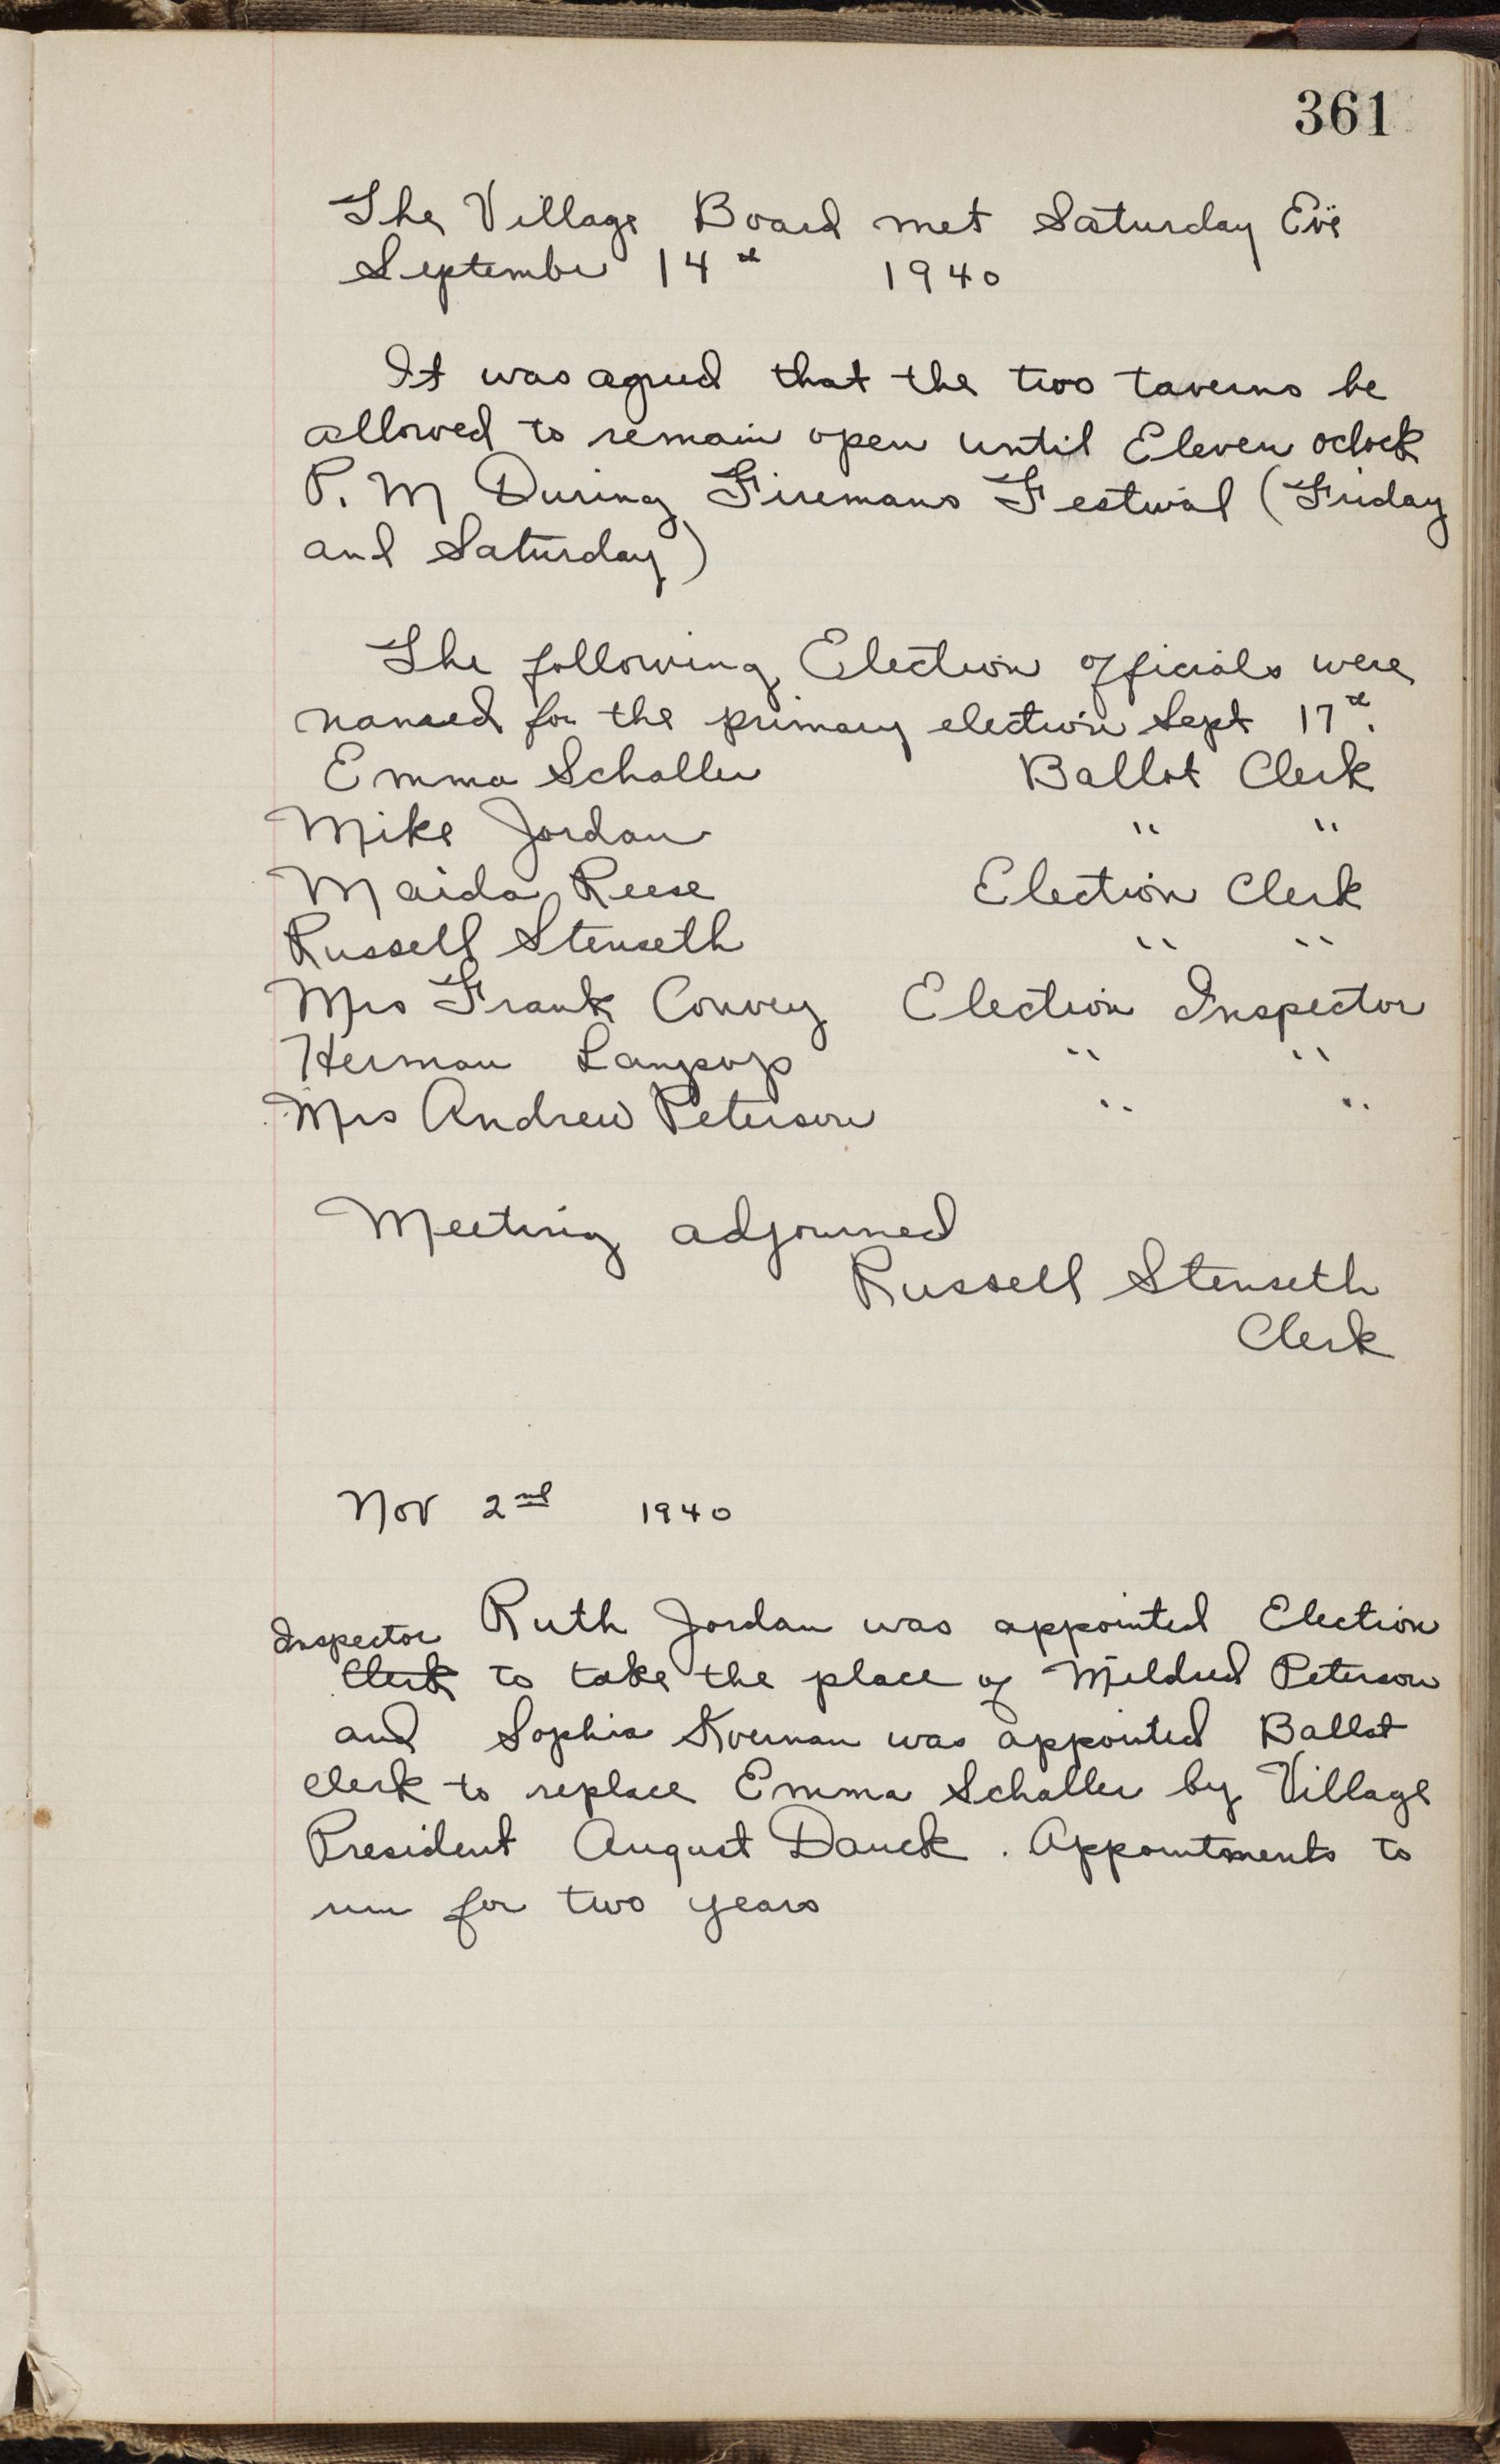 361
The Village Board met Saturday Eve
September 14th 1940
It was agreed that the two taverns be
allowed to remain open until Eleven oclock
P. M During Firemans Festival (Friday
and Saturday)
The following Election officials were
named for the primary election Sept 17th.
Emma Schaller Ballot Clerk
Mike Jordan " "
Maida Reese Election Clerk
Russell Stenseth " "
Mrs Frank Convey Election Inspector
Herman " "
Mrs Andrew Peterson " "
Meeting adjourned
Russell Stenseth
Clerk
Nov 2nd 1940
Ruth Jordan was appointed Election
Inspector
Clerk to take the place of Mildred Peterson
and Sophia was appointed Ballot
clerk to replace Emma Schaller by Village
President August Danck. Appointments to
run for two years